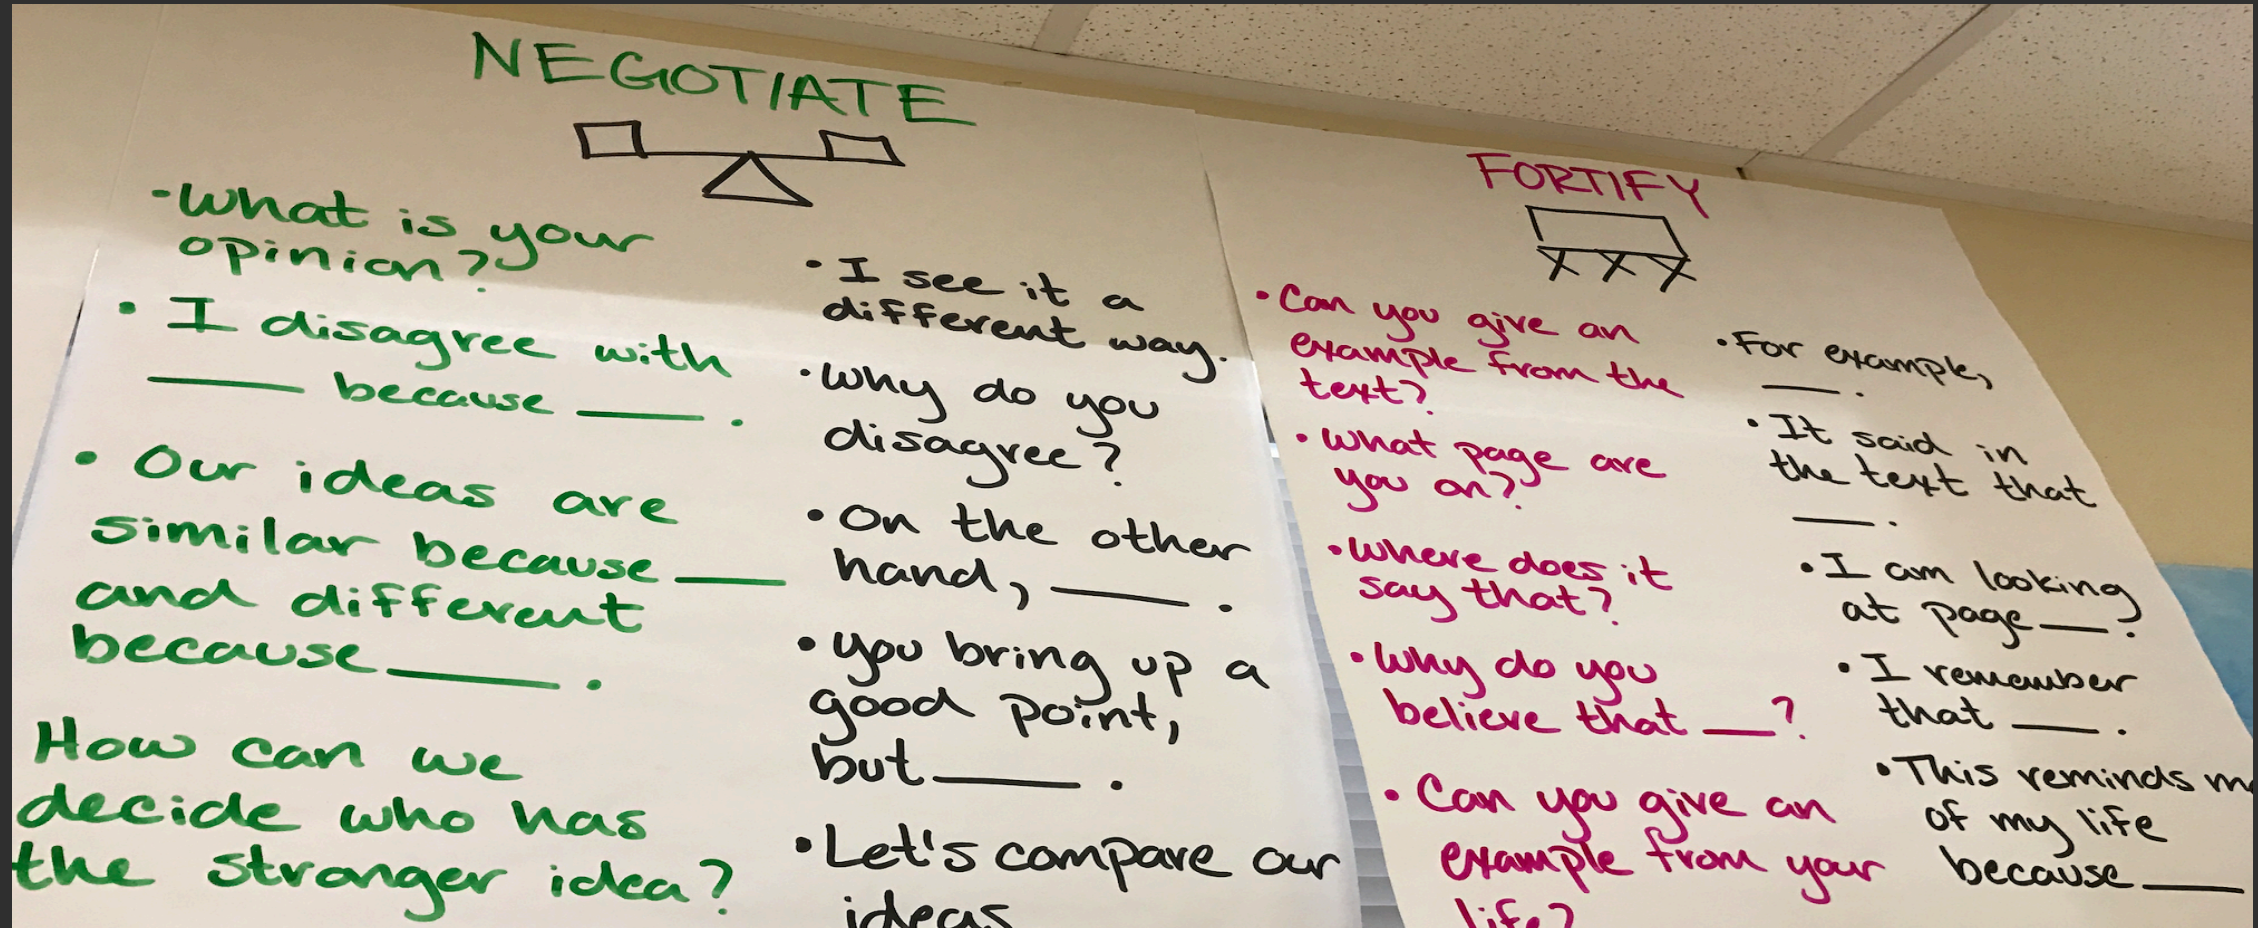 NEGOTIATE
-What is your
opinion?
• I disagree with
____ because ____.
• Our ideas are
similar because ____
and different
because ____.
How can we
decide who has
the stronger idea?
• I see it a
different way.
• Why do you
disagree?
• On the other
hand, ____.
• you bring up a
good point,
but ____.
• Let's compare our
ideas
FORTIFY
• Can you give an
example from the
text?
• What page are
you on?
• Where does it
say that?
• Why do you
believe that ___?
• Can you give an
example from your
life?
• For example,
___.
• It said in
the text that
___.
• I am looking
at page ___?
• I remember
that ___.
• This reminds me
of my life
because ___